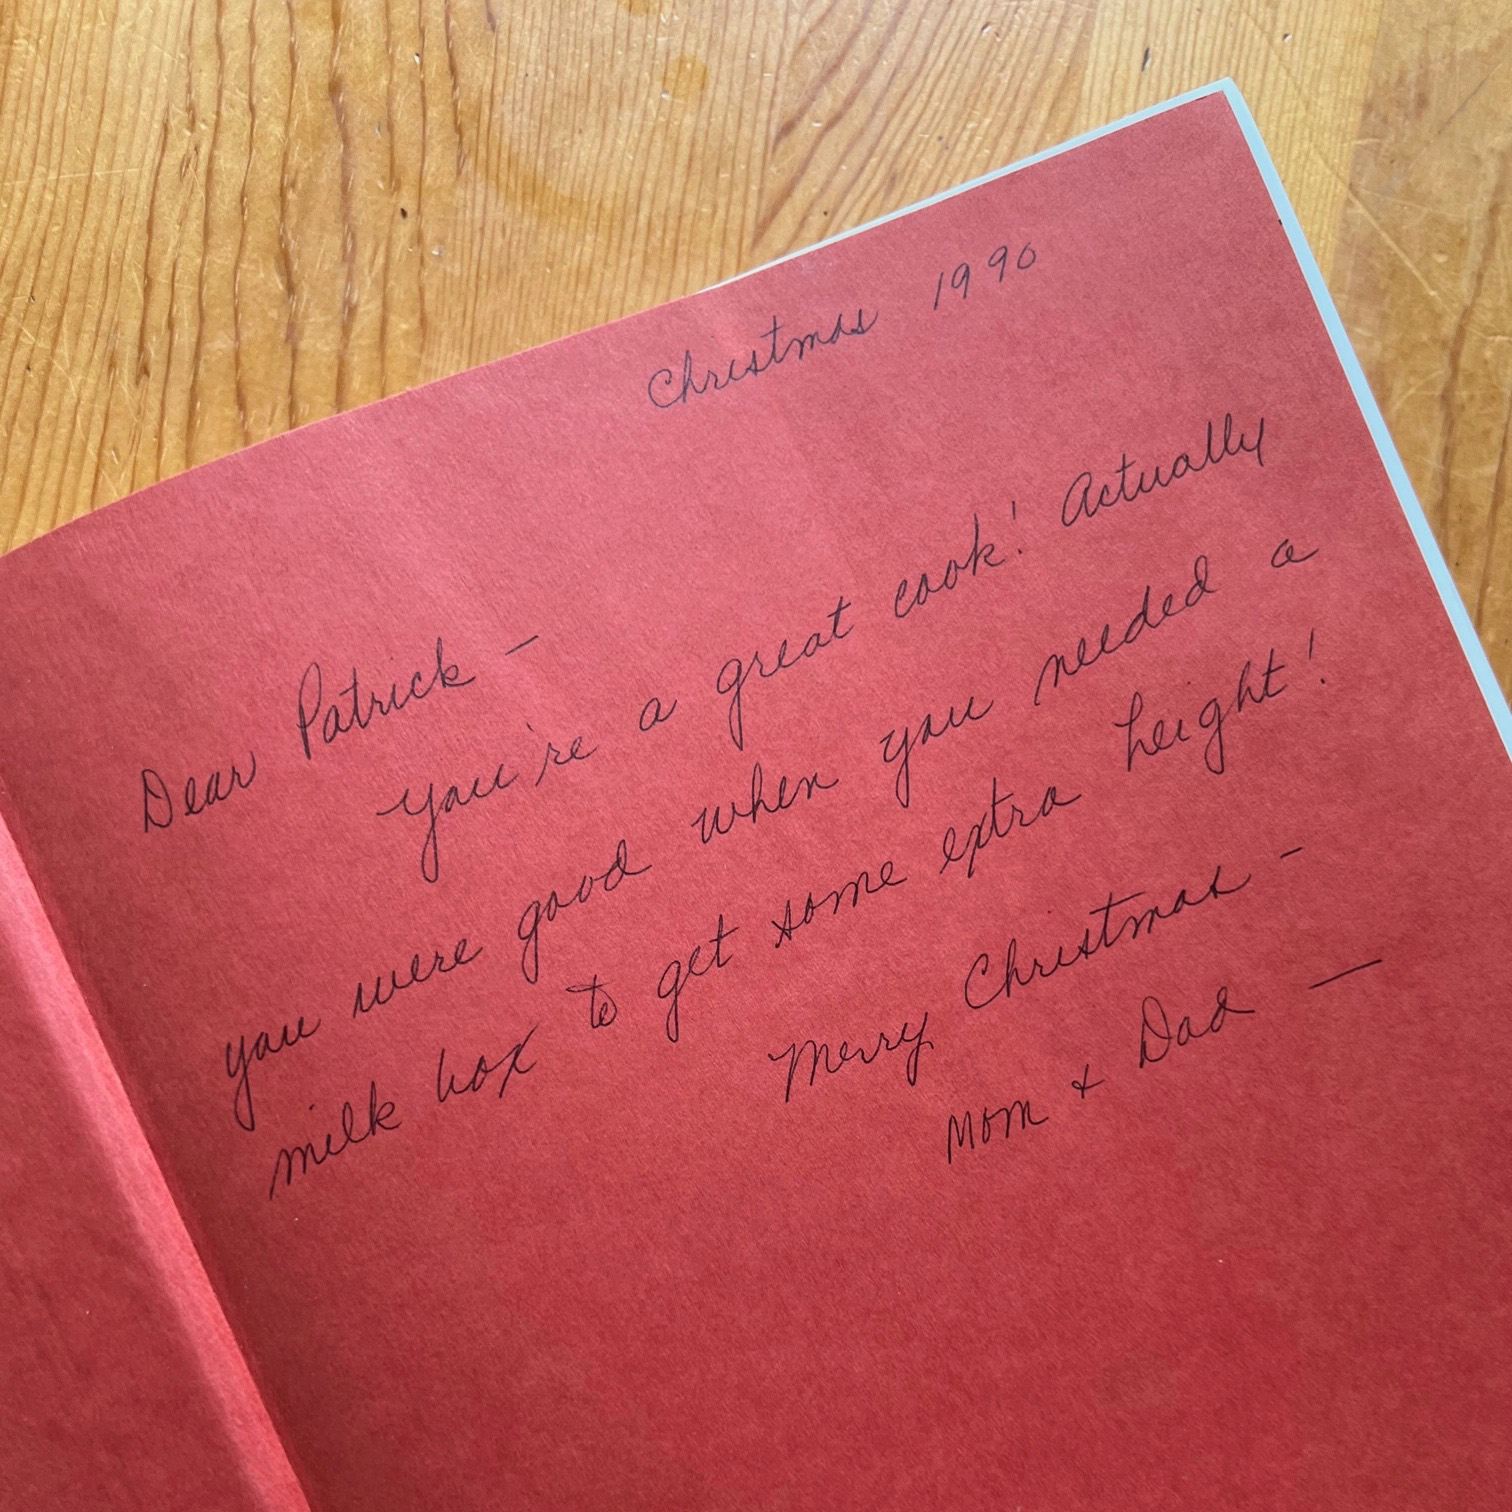 Christmas 1990
Dear Patrick –
You're a great cook! Actually
you were good when you needed a
milk box to get some extra height!
Merry Christmas –
Mom + Dad —